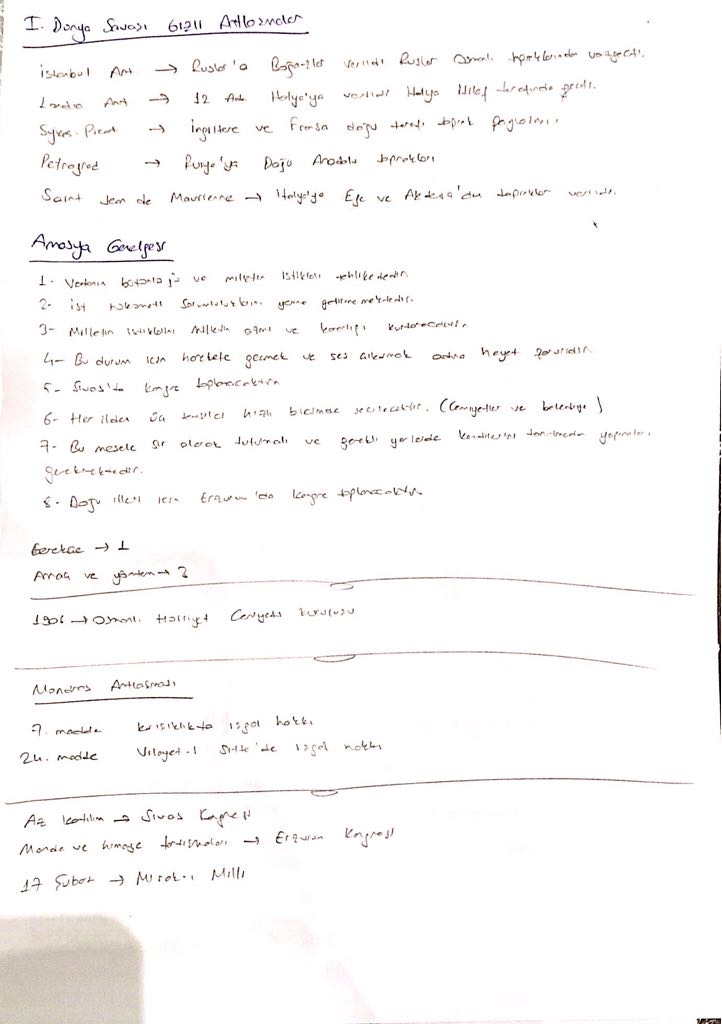 I. Dünya Savaşı Gizli Antlaşmalar
İstanbul Ant → Ruslar'a Boğazlar verildi Ruslar Osmanlı topraklarından vazgeçti.
Londra Ant → 12 Ada İtalya'ya verildi İtalya İtilaf tarafında geçti.
Sykes-Picot → İngiltere ve Fransa doğu tarafı toprak paylaşımı
Petrograd → Rusya'ya Doğu Anadolu toprakları
Saint Jean de Maurienne → İtalya'ya Ege ve Akdeniz'den topraklar verildi.
Amasya Genelgesi
1- Vatanın bütünlüğü ve milletin istiklali tehlikededir.
2- İst hükümeti sorumluluklarını yerine getirememektedir.
3- Milletin istiklalini milletin azmi ve kararlığı kurtaracaktır.
4- Bu durum için harekete geçmek ve ses çıkarmak adına heyet şarttır.
5- Sivas'ta kongre toplanacaktır
6- Her ilden üç temsilci hızlı biçimde seçilecektir. (Cemiyetler ve belediye)
7- Bu mesele sır olarak tutulmalı ve gerekli yerlerde kendilerini tanıtmadan yapmaları
gerekmektedir.
8- Doğu illeri için Erzurum'da kongre toplanacaktır
Gerekçe → 1
Amaç ve yöntem → 3
1906 → Osmanlı Hürriyet Cemiyeti kuruluşu
Mondros Antlaşması
7. madde karışıklıkta işgal hakkı
24. madde Vilayet-i Sitte'de işgal hakkı
Az katılım → Sivas Kongresi
Manda ve himaye tartışmaları → Erzurum Kongresi
17 Şubat → Misak-ı Milli